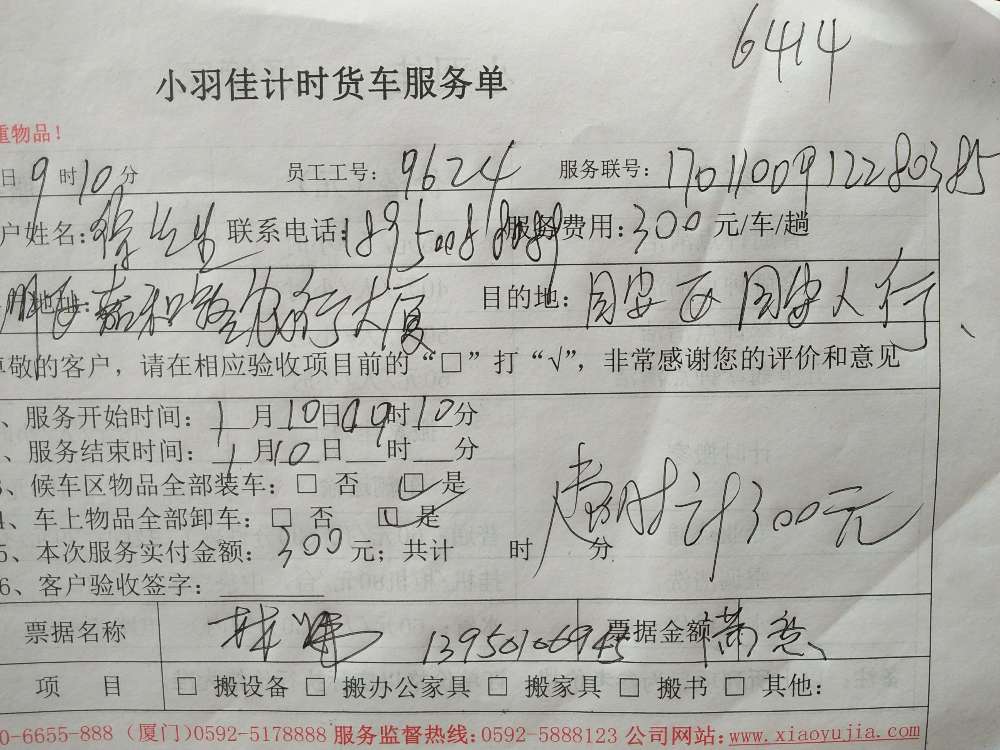 6414
小羽佳计时货车服务单
重物品！
日9时10分 员工工号：9624 服务联号：1701100912280385
户姓名： 联系电话： 服务费用：300元/车/趟
地址： 嘉和路 大厦 目的地：同安 同安人行
尊敬的客户，请在相应验收项目前的“□”打“√”，非常感谢您的评价和意见
、服务开始时间：1月10日09时10分
、服务结束时间：1月10日 时 分
3、候车区物品全部装车：□ 否 □ 是
4、车上物品全部卸车：□ 否 □ 是
计300元
5、本次服务实付金额：300元；共计 时 分
6、客户验收签字：
票据名称 林 票据金额
项 目 □ 搬设备 □ 搬办公家具 □ 搬家具 □ 搬书 □ 其他：
0-6655-888（厦门)0592-5178888 服务监督热线:0592-5888123 公司网站:www.xiaoyujia.com